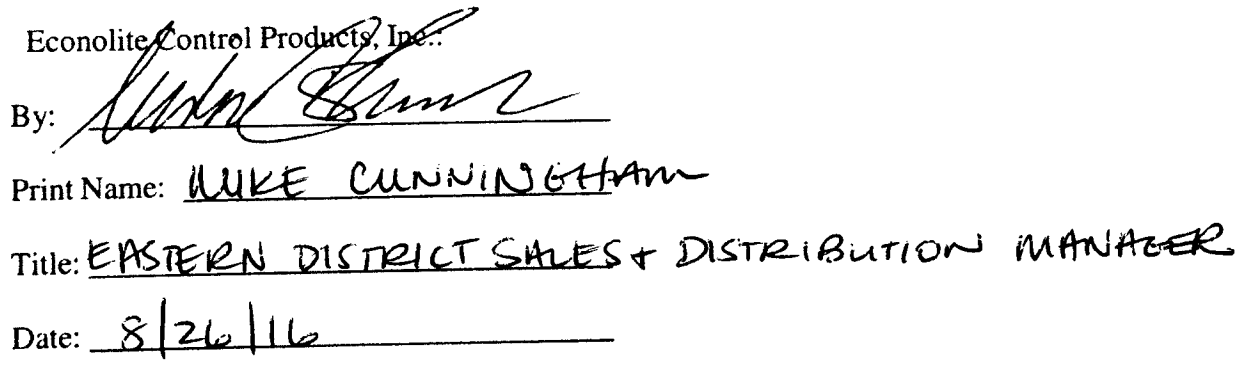 Econolite Control Products, Inc.:
By:
Print Name: MIKE CUNNINGHAM
Title: EASTERN DISTRICT SALES + DISTRIBUTION MANAGER
Date: 8/26/16